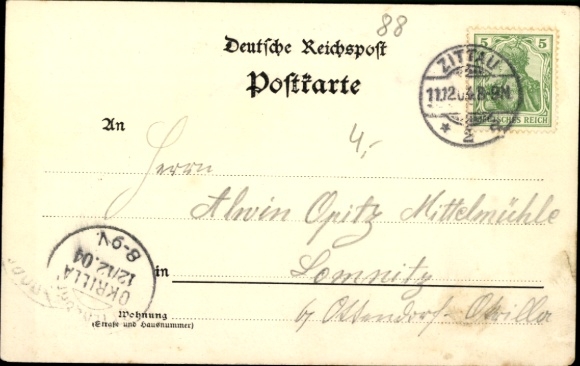 88
Deutsche Reichspost
Postkarte
5 5
DEUTSCHES REICH
ZITTAU
11.12.04. 8-9N.
* 2
An
4,-
Herrn
Alwin Opitz Mittelmühle
in Lomnitz
b/ Ottendorf-Okrilla
Wohnung
(Straße und Hausnummer)
OKRILLA
12/12.04
8-9V.